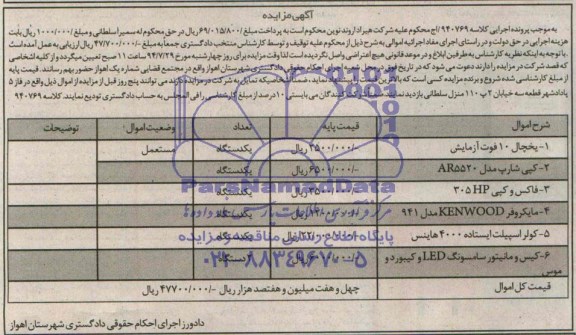 آگهی مزایده
به موجب پرونده اجرایی کلاسه ۹۴۰۷۶۹/اج محکوم علیه شرکت هیراد اروند نوین محکوم است به پرداخت مبلغ ۶۹/۰۱۵/۸۰۰/ ریال در حق محکوم له سمیر اسلطانی و مبلغ ۱/۰۰۰/۰۰۰/ ریال بابت
هزینه اجرایی در حق دولت و در راستای اجرای مفاد اجرائیه اموالی به شرح ذیل از محکوم علیه توقیف و توسط کارشناس منتخب دادگستری جمعا به مبلغ ۴۷/۷۰۰/۰۰۰/- ریال ارزیابی به عمل آمده است
با توجه به اینکه نظریه کارشناس به طرفین ابلاغ و در موعد قانونی هیچ اعتراضی واصل نگردیده است لذا وقت مزایده برای روز چهارشنبه مورخ ۹۴/۷/۲۹ ساعت ۱۱ صبح تعیین میگردد و از کلیه اشخاصی
که قصد شرکت در مزایده را دارند دعوت می شود که در تاریخ فوق در محل اجرای احکام حقوقی دادگستری شهرستان اهواز واقع در مجتمع قضایی شماره یک اهواز حضور بهم رسانند. قیمت پایه
از مبلغ کارشناسی شده شروع و برنده مزایده کسی است که بالاترین قیمت را پیشنهاد نماید. ضمنا اشخاصیکه تمایل به شرکت در مزایده دارند می توانند پنج روز قبل از مزایده از اموال ذیل واقع در فاز ۵
پادادشهر قطعه سه خیابان ۲ پ ۱۱۰ منزل سلطانی بازدید نمایند. شرکت کنندگان می بایستی ۱۰ درصد از مبلغ کارشناسی را فی المجلس به حساب دادگستری تودیع نمایند. کلاسه ۹۴۰۷۶۹
شرح اموال قیمت پایه تعداد وضعیت اموال توضیحات
۱- یخچال ۱۰ فوت آزمایش ۳۵۰۰/۰۰۰/- ریال یکدستگاه مستعمل
۲- کپی شارپ مدل AR۵۵۲۰ ۶۵۰۰/۰۰۰/- ریال یکدستگاه
۳- فاکس و کپی ۳۰۵ HP ۳۵۰۰/۰۰۰/- ریال یکدستگاه
۴- مایکروفر KENWOOD مدل ۹۴۱ ریال یکدستگاه
۵- کولر اسپیلت ایستاده ۴۰۰۰ هاینس ریال یکدستگاه
۶- کیس و مانیتور سامسونگ LED و کیبورد و موس ریال دستگاه
قیمت کل اموال چهل و هفت میلیون و هفتصد هزار ریال ۴۷۷۰۰/۰۰۰/- ریال
دادورز اجرای احکام حقوقی دادگستری شهرستان اهواز
ParsNamadData
پایگاه اطلاع رسانی مناقصه و مزایده
۰۲۱-۸۸۳۴۹۶۷۰-۵